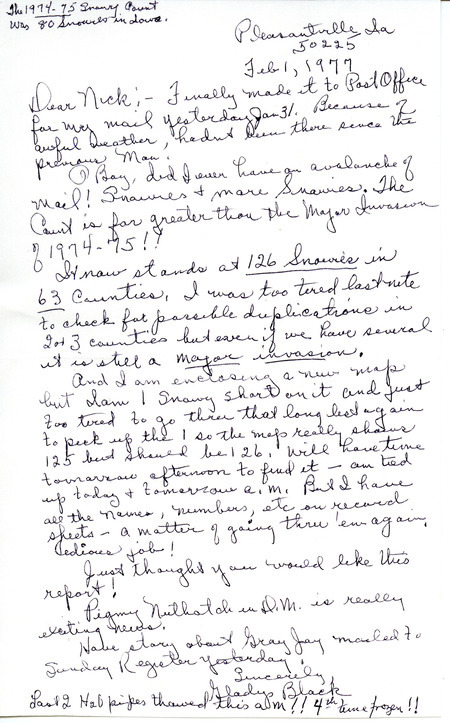 The 1974-75 Snowy Count
Was 80 Snowies in Iowa.
Pleasantville, Ia
50225
Feb 1, 1977
Dear Nick:- Finally made it to Post Office
for my mail yesterday, Jan 31. Because of
awful weather, hadn't been there since the
previous Mon.
O Boy, did I ever have an avalanche of
mail! Snowies & more Snowies. The
Count is far greater than the Major Invasion
of 1974-75!!
It now stands at 126 Snowies in
63 Counties. I was too tired last nite
to check for possible duplications in
2 or 3 counties but even if we have several
it is still a major invasion.
And I am enclosing a new map
but I am 1 Snowy short on it and just
too tired to go thru that long list again
to pick up the 1 so the map really shows
125 but should be 126. Will have time
tomorrow afternoon to find it - am tied
up today & tomorrow a.m. But I have
all the names, numbers, etc on record
sheets - a matter of going thru 'em again.
Tedious job!
Just thought you would like this
report!
Pigmy Nuthatch in D.M. is really
exciting news.
Have story about Gray Jay mailed to
Sunday Register yesterday!
Sincerely,
Gladys Black
Last 2 pipes thawed this a.m!! 4th time frozen!!